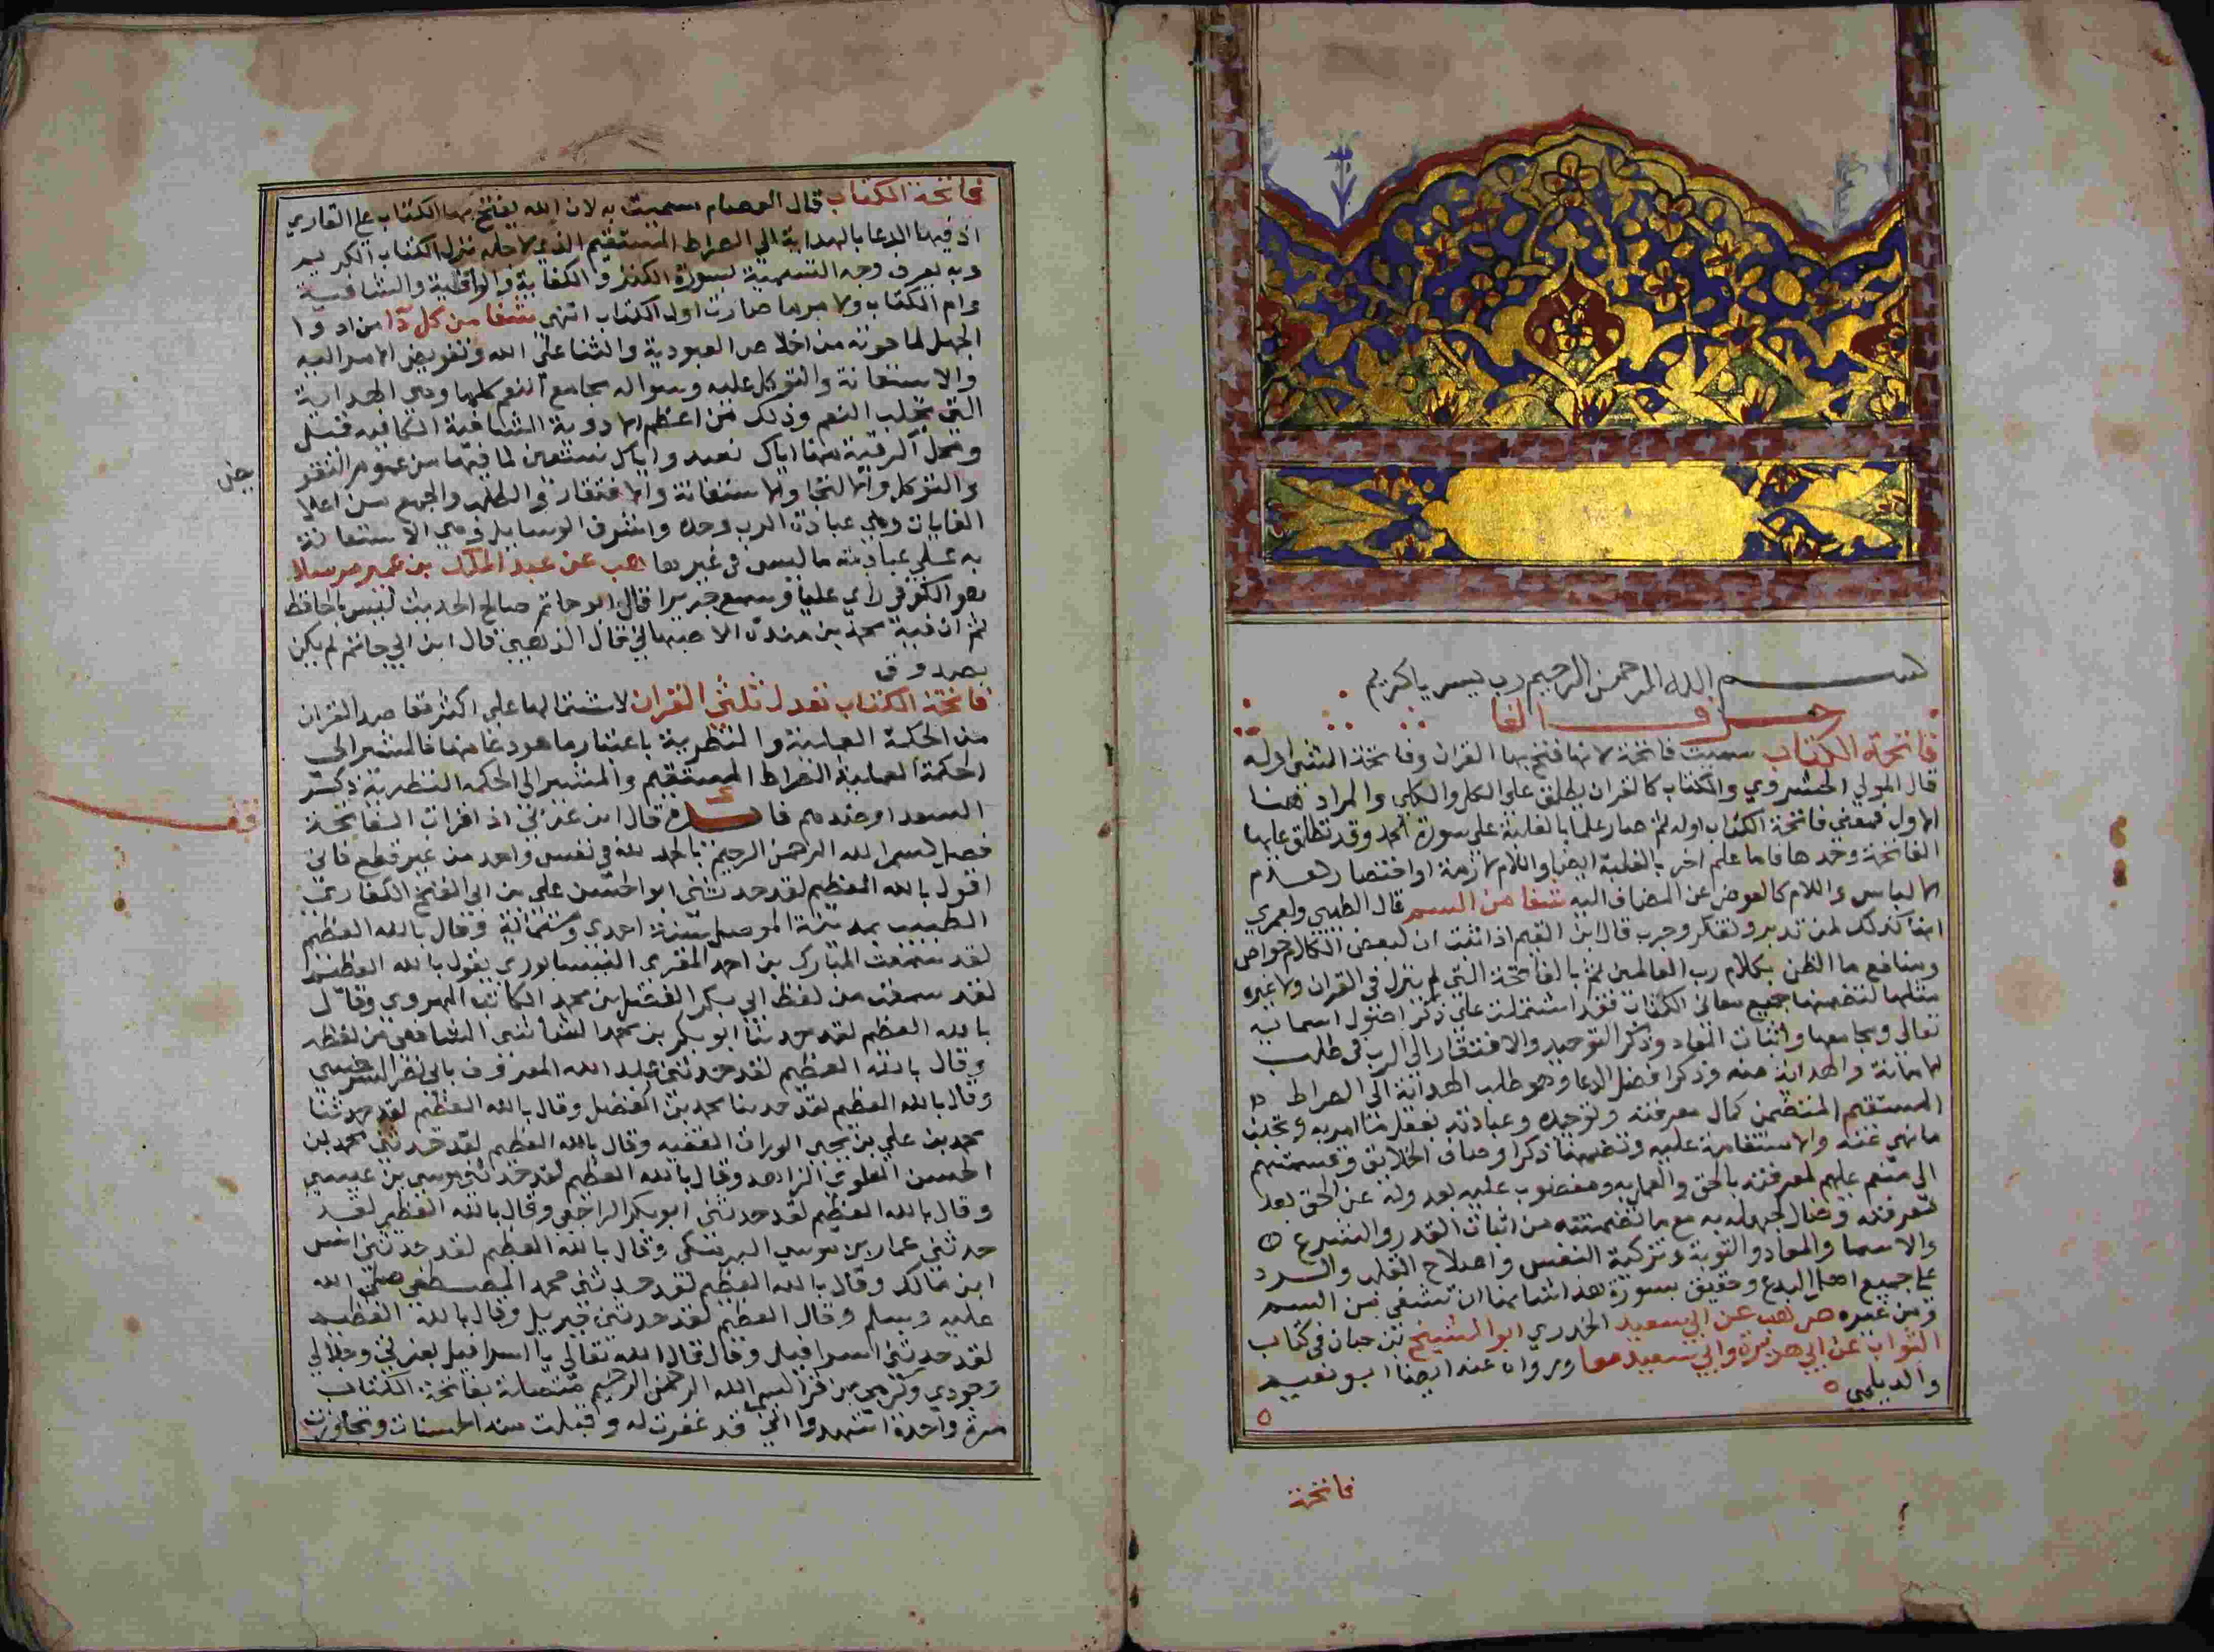 بسم الله الرحمن الرحيم رب يسر يا كريم
حرف الفا
فاتحة الكتاب سميت فاتحة لانها فتح بها القران وفاتحة الشي اوله
قال المولى الخسروي والكتاب كالقران يطلق على الكل والكلي والمراد هنا
الاول فمعنى فاتحة الكتاب اوله ثم صار علما بالغلبة على سورة الحمد وقد تطلق عليها
الفاتحة وحدها فاما علم اخر بالغلبة ايضا واللام لازمة او اختصار
واللام كالعوض عن المضاف اليه شفا من السم قال الطيبي ولعمري
انها كذلك لمن تدبر وتفكر وجرب قال ابن القيم اذا ثبت ان لبعض الكلام خواص
ومنافع ما الظن بكلام رب العالمين ثم بالفاتحة التي لم ينزل في القران ولا غيره
مثلها لتضمنها جميع معاني الكتاب فقد اشتملت على ذكر اصول اسمائه
تعالى ومجامعها واثبات المعاد وذكر التوحيد والافتقار الى الرب في طلب
الاعانة والهداية منه وذكر افضل الدعا وهو طلب الهداية الى الصراط
المستقيم المتضمن كمال معرفته وتوحيده وعبادته بفعل ما امر به وتجنب
ما نهى عنه والاستقامة عليه وتضمنها ذكر اوصاف الخلايق وقسمتهم
الى منعم عليهم لمعرفته بالحق والعمل به ومغضوب عليه بعدوله عن الحق بعد
معرفته وضال لجهله به مع ما تضمنته من اثبات القدر والشرع
والاسما والمعاد والتوبة وتزكية النفس واصلاح القلب والرد
على جميع اهل البدع وحقيق بسورة هذا شانها ان تشفي من السم
ومن غيره ص هب عن ابي سعيد الخدري ابو الشيخ بن حبان في كتاب
الثواب عن ابي هريرة وابي سعيد معا ورواه عنه ايضا ابو نعيم
والديلمي
فاتحة
فاتحة الكتاب قال العصام سميت به لان الله يفتح بها الكتاب على القاري
اذ فيها الدعا بالهداية الى الصراط المستقيم الذي لاجله نزل الكتاب الكريم
وبه يعرف وجه التسمية بسورة الكنز والكفاية والواقية والشافية
وام الكتاب ولامر ما صارت اول الكتاب انتهى شفا من كل دا من ادوا
الجهل لما حوته من اخلاص العبودية والثنا على الله وتفويض الامر اليه
والاستعانة والتوكل عليه وسواله مجامع النعم كلها وهي الهداية
التي تجلب النعم وذلك من اعظم الادوية الشافية الكافيه قيل
ومحل الرقية منها اياك نعبد واياك نستعين لما فيها من عموم التفويض
والتوكل والالتجا والاستعانة والافتقار والطلب والجمع بين اعلا
الغايات وهي عبادة الرب وحده واشرف الوسايل وهي الاستعانة
به على عبادته ما ليس في غيرها هب عن عبد الملك بن عمير مرسلا
هو الكوفي راى عليا وسمع جريرا قال ابو حاتم صالح الحديث ليس بالحافظ
ثم ان فيه محمد بن منده الاصبهاني قال الذهبي قال ابن ابي حاتم لم يكن
بصدوق
فاتحة الكتاب تعدل ثلثي القران لاشتمالها على اكثر مقاصد القران
من الحكمة العملية والنظرية باعتبار ما هو دعا منها فالمشير الى
الحكمة العملية الصراط المستقيم والمشير الى الحكمه النظرية ذكر
السعدا وضدهم فائدة قال ابن عربي اذا قرات الفاتحة
فصل بسم الله الرحمن الرحيم بالحمد لله في نفس واحد من غير قطع فاني
اقول بالله العظيم لقد حدثني ابو الحسن علي بن ابي الفتح الكناري
الطبيب بمدينة الموصل سنة احدى وستمائة وقال بالله العظيم
لقد سمعت المبارك بن احمد المقري النيسابوري يقول بالله العظيم
لقد سمعت من لفظ ابي بكر الفضل بن محمد الكاتب الهروي وقال
بالله العظيم لقد حدثنا ابو بكر بن محمد الشاشي الشافعي من لفظه
وقال بالله العظيم لقد حدثني عبد الله المعروف بابي نصر السرخسي
وقال بالله العظيم لقد حدثنا محمد بن الفضل وقال بالله العظيم لقد حدثنا
محمد بن علي بن يحيى الوراق الفقيه وقال بالله العظيم لقد حدثني محمد بن
الحسن العلوي الزاهد وقال بالله العظيم لقد حدثني موسى بن عيسى
وقال بالله العظيم لقد حدثني ابو بكر الراجعي وقال بالله العظيم لقد
حدثني عمار بن موسى البرمكي وقال بالله العظيم لقد حدثني انس
ابن مالك وقال بالله العظيم لقد حدثني محمد المصطفى صلى الله
عليه وسلم وقال العظيم لقد حدثني جبريل وقال بالله العظيم
لقد حدثني اسرافيل وقال قال الله تعالى يا اسرافيل بعزتي وجلالي
وجودي وكرمي من قرا بسم الله الرحمن الرحيم متصلة بفاتحة الكتاب
مرة واحدة اشهدوا اني قد غفرت له وقبلت منه الحسنات وتجاوزت
قف